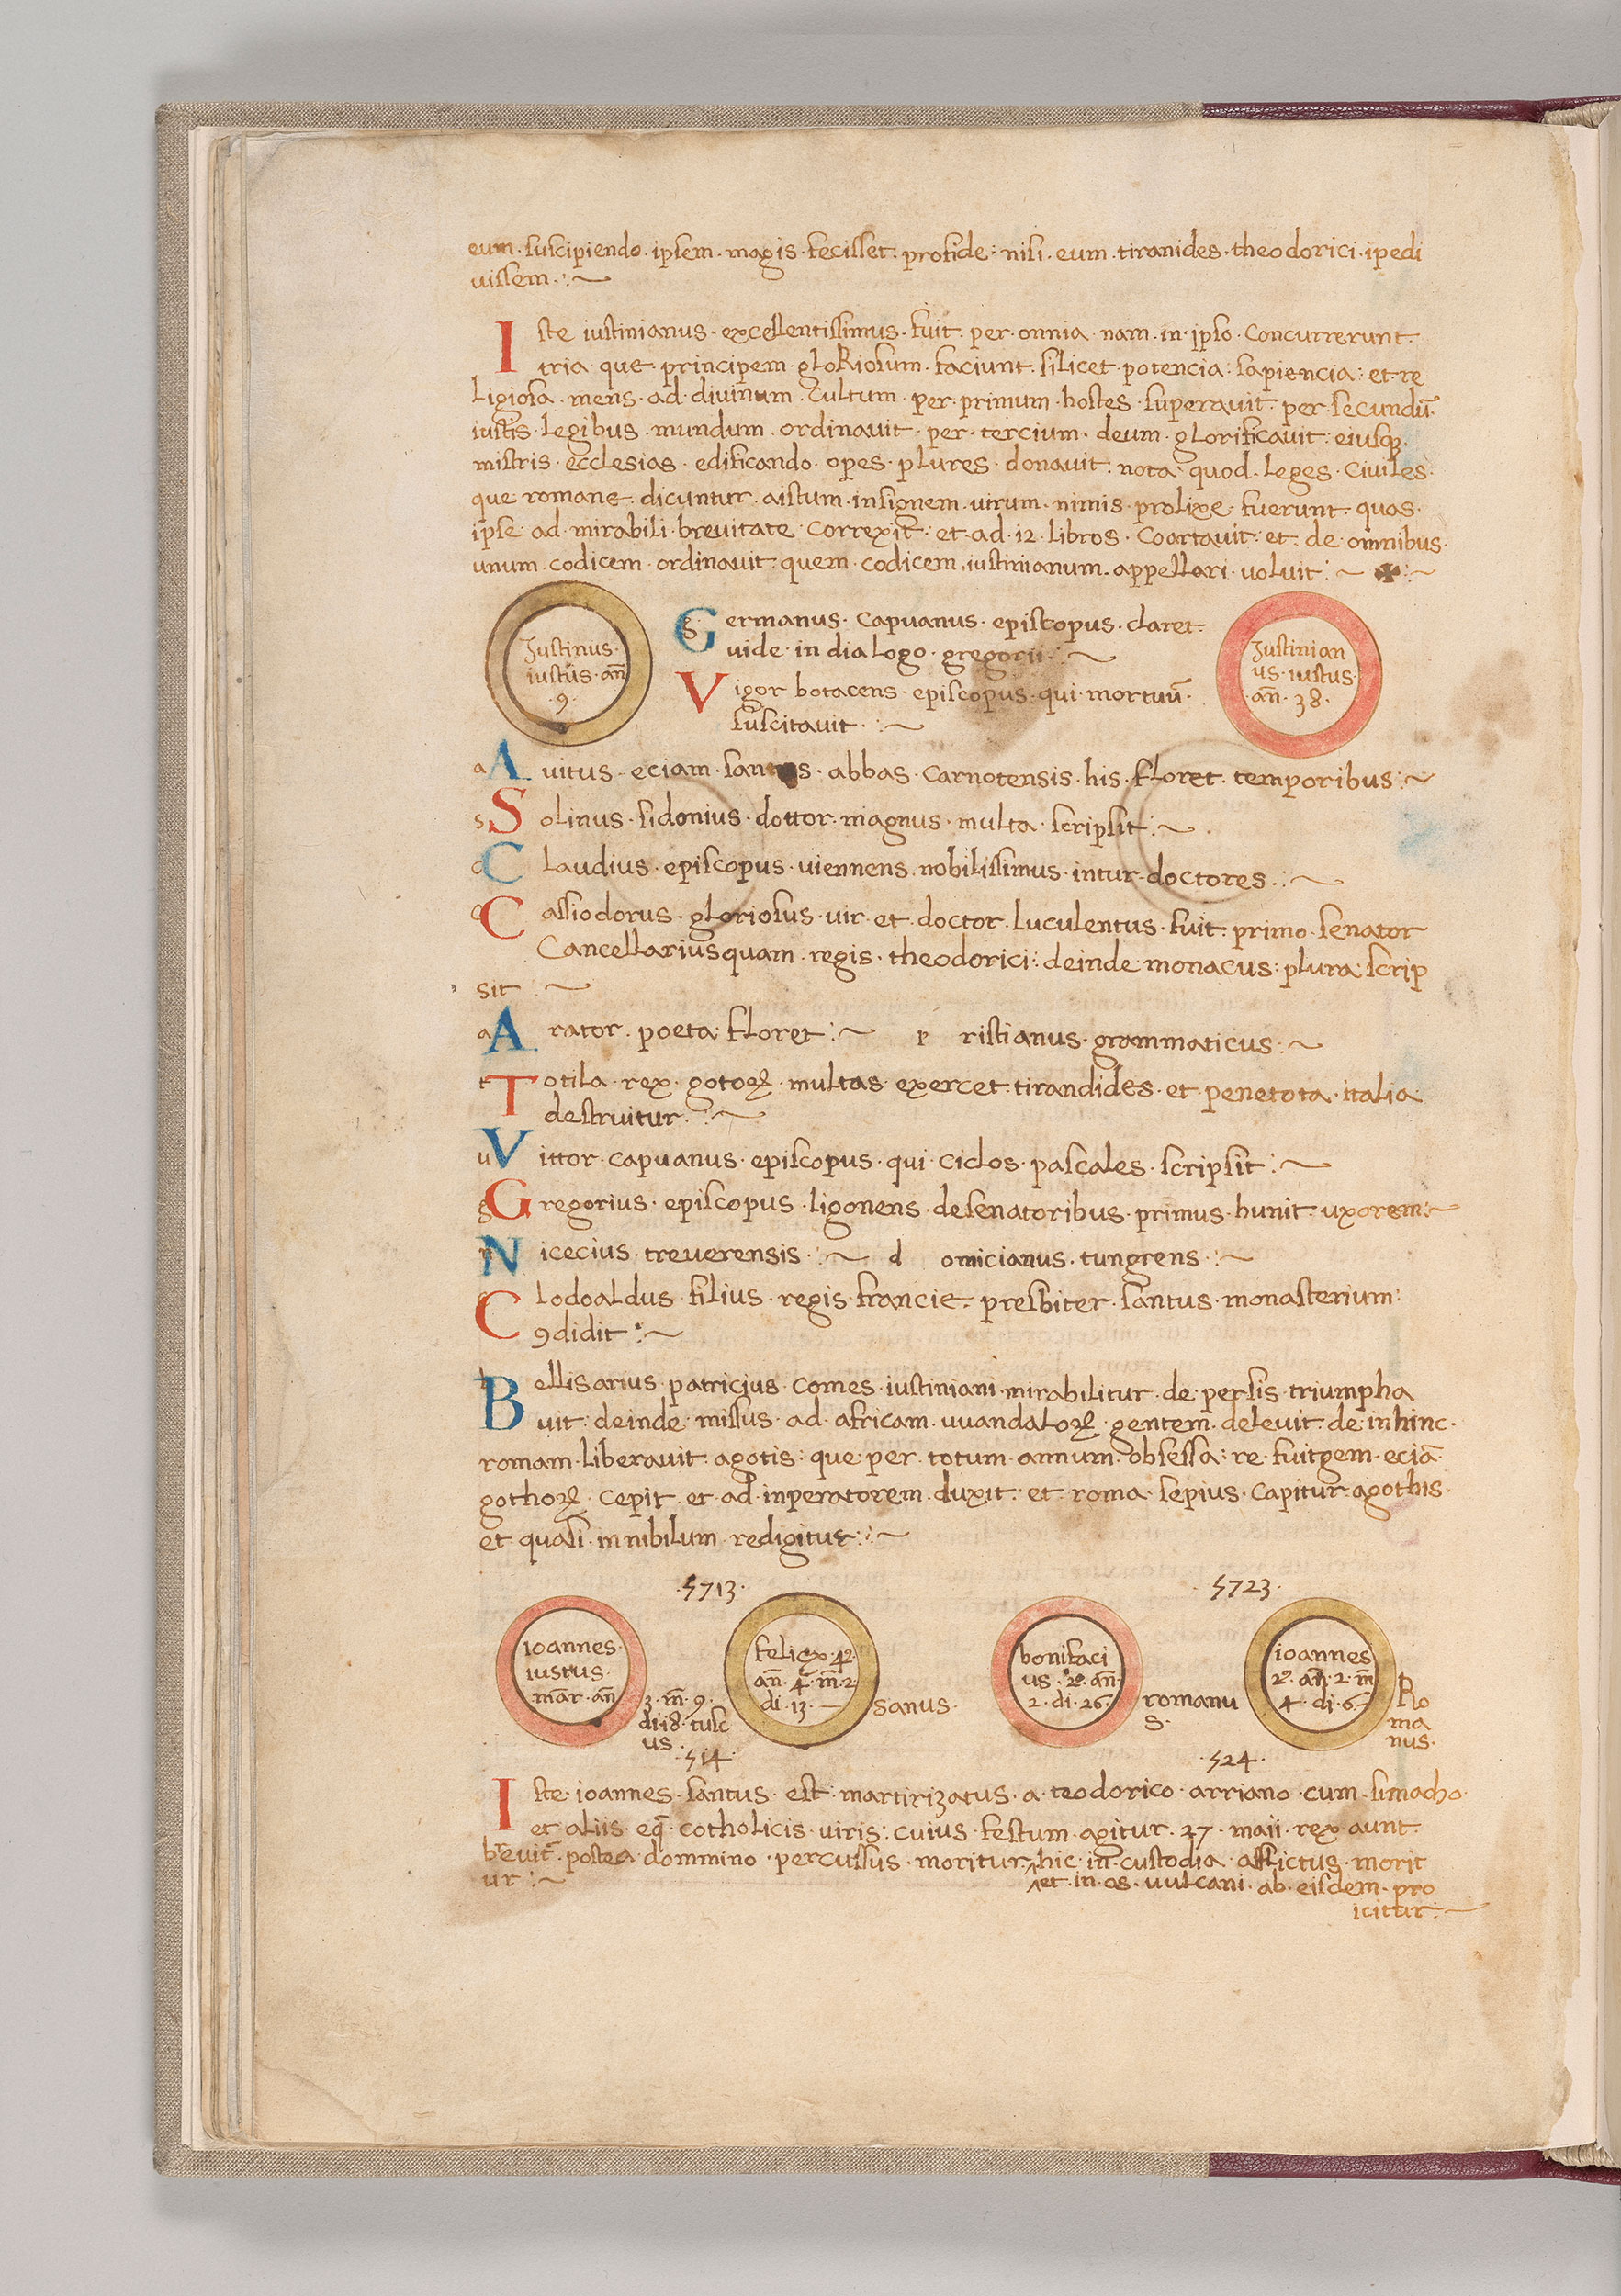 eum · suscipiendo · ipsem · magis · fecisset · profide : nisi · eum · tiranides · theodorici · ipedi
uissem · : ~
Iste iustinianus · excellentissimus · fuit · per · omnia · nam · in · ipso · concurrerunt ·
tria · que · principem · gloRiosum · faciunt · silicet · potencia : sapiencia : et · re
ligiosa · mens · ad · diuinum · cultum · per · primum · hostes · superauit · per · secundū ·
iustis · legibus · mundum · ordinauit · per · tercium · deum · glorificauit : eiusq3
mistris · ecclesias · edificando · opes · plures · donauit : nota · quod · leges · ciuiles ·
que romane · dicuntur · aistum · insignem · uirum · nimis · prolixe · fuerunt · quas ·
ipse · ad · mirabili · breuitate · correxit · et · ad · 12 · libros · coartauit · et · de · omnibus ·
unum · codicem · ordinauit · quem · codicem · iustinianum · appellari · voluit : ~ ✠ : ~
Justinus ·
iustus · an̄
· 9 ·
g Germanus · capuanus · episcopus · claret ·
uide · in dialogo · gregorii · : ~
Vigor botacens · episcopus · qui · mortuū ·
suscitauit · : ~
Justinian
us · iustus ·
· an̄ · 38 ·
a Auitus · eciam · santus · abbas · carnotensis · his · floret · temporibus : ~
s Solinus · sidonius · dottor · magnus · multa · scripsit : ~ ·
c Claudius · episcopus · uiennens · nobilissimus · intur · doctores · : ~
c Cassiodorus · gloriosus · uir · et · doctor · luculentus · fuit · primo · senator
cancellariusquam · regis · theodorici : deinde monacus : plura scrip
sit : ~
a Arator · poeta · floret : ~ p ristianus · grammaticus : ~
t Totila · rex · gotoꝝ · multas · exercet · tirandides · et · penetota · italia
destruitur · : ~
u Vittor · capuanus · episcopus · qui · ciclos · pascales · scripsit : ~
g Gregorius · episcopus · ligonens · desenatoribus · primus · hunit · uxorem : ~
n Nicecius · treuerensis : ~ d omicianus · tungrens · : ~
c Clodoaldus · filius · regis · francie · presbiter · santus · monasterium :
ꝯdidit : ~
b Bellisarius · patricius · comes · iustiniani · mirabilitur · de · persis · triumpha
uit : deinde · missus · ad · africam · uuandaloꝝ · gentem · deleuit · de · inhinc ·
romam · liberauit · agotis : que · per · totum · annum · obsessa : re · fuitgem · eciā
gothoꝝ · cepit · et · ad · inperatorem · duxit : et · roma · sepius · capitur · agothis ·
et · quasi · in nibilum · redigitur : ~
· 5713 · · 5723 ·
ioannes ·
iustus ·
mār · an̄ 3 · m̄ · 9 ·
di 18 · tusc
us ·
felix · 4 ·
an̄ · 4 · m̄ · 2
di · 13 · — sanus ·
bonifaci
us · 2 · an̄ ·
2 · di · 26 · romanu
s ·
ioannes
2 · an̄ · 2 · m̄
4 · di · 6 · Ro
ma
nus ·
· 514 · · 524 ·
Iste · ioannes · santus · est · martirizatus · a · teodorico · arriano · cum · simacho ·
et · aliis · eq̄ · cotholicis · uiris : cuius · festum · agitur · 27 · maii · rex · aunt ·
breuit̄ · postea · dommino · percussus · moritur · ^ hic · in · custodia · afflictus · morit
ur : ~ ^ et · in · os · uulcani · ab · eisdem · pro
icitur : ~